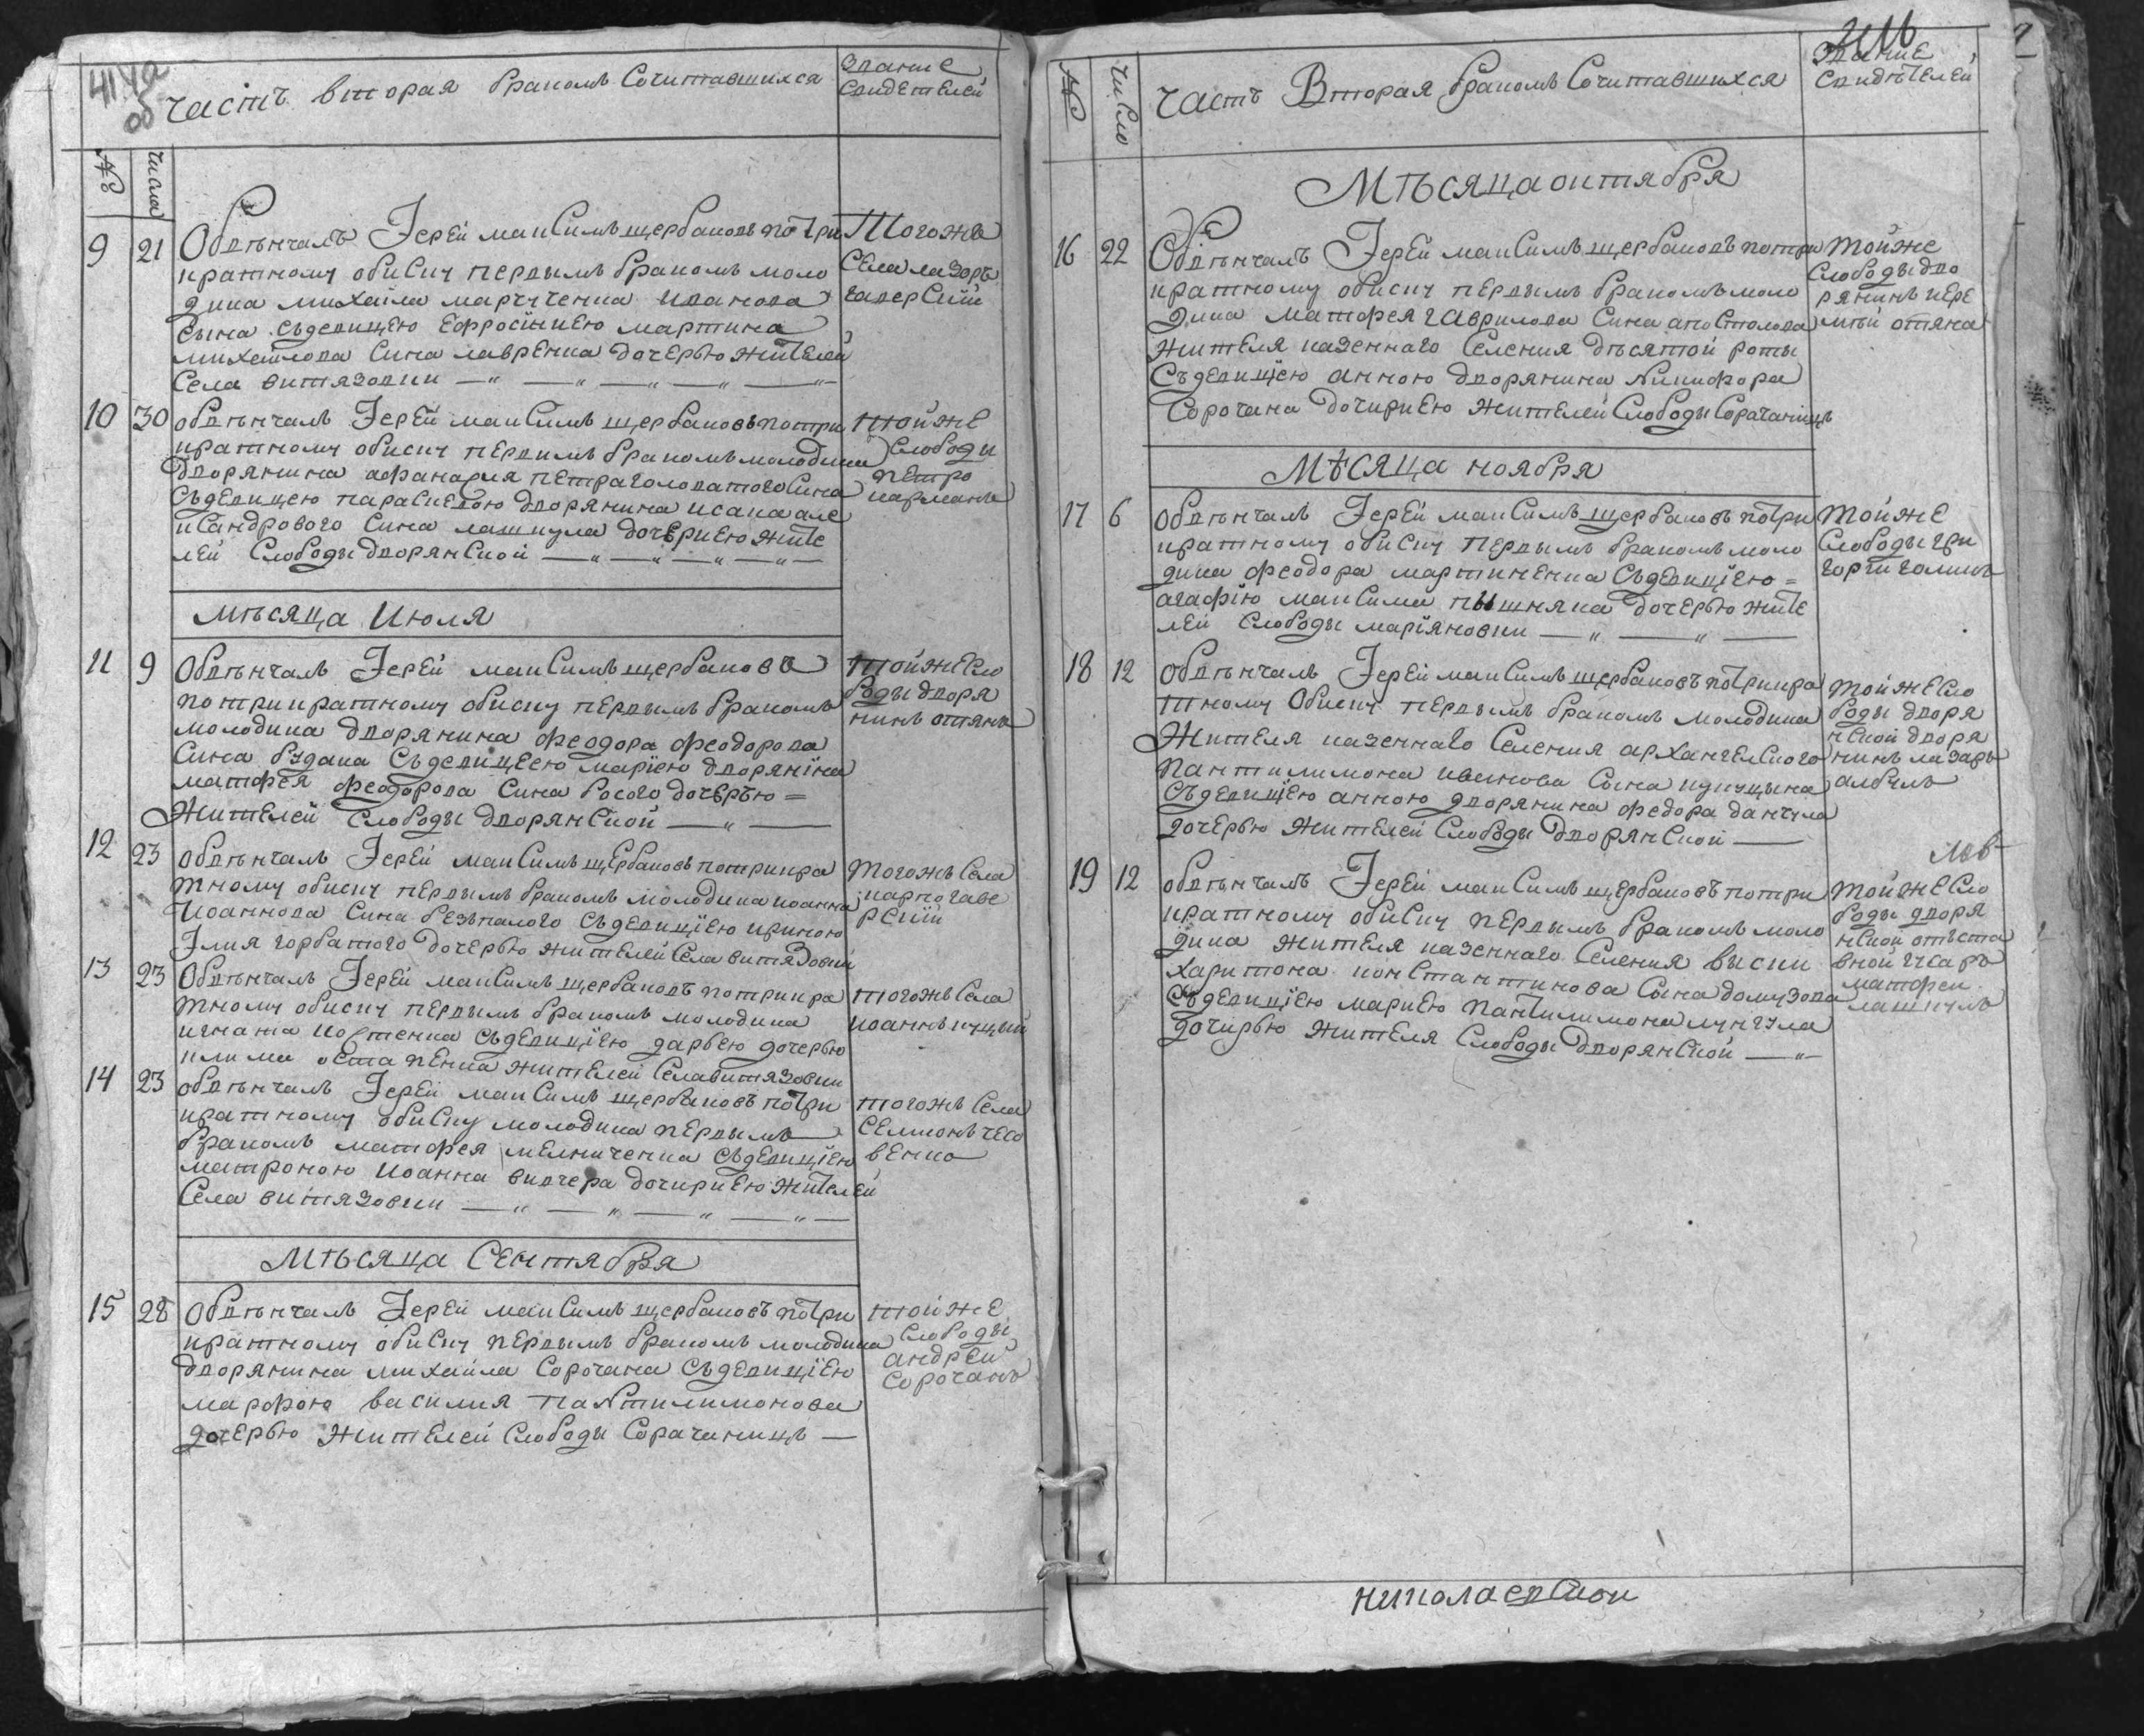 часть вторая бракомъ Сочитавшихся
Звание
Свидетелей
№
числа
9 21 Обвѣнчалъ Іерей максимъ щербаковъ по три
кратному обиску первымъ бракомъ моло
дика михаила марчченка иванова
сына съдевицею Ефросиниею мартина
михайлова сина лавренка дочерью жителей
села витязовки
Тогожъ
села лазоръ
гаверский
10 30 обвѣнчалъ Іерей максимъ щербаковъ потри
кратному обиску первимъ бракомъ молодика
дворянина афанасия петраголоватого сина
съдевицею параскевою дворянина исака але
ксандрового сина лашкула дочериею жите
лей слободы дворянской
той же
слободи
петро
карманъ
мѣсяца Июля
11 9 Обвѣнчалъ Іерей максимъ щербаковъ
потрикратному обиску первымъ бракомъ
молодика дворянина феодора феодорова
сина будака съдевицеею мариею дворяніна
матфея феодорова сина босого дочерѣю =
жителей слободы дворянской
тойже сло
боды дворя
нинъ отянъ
12 23 обвѣнчалъ Іерей максимъ щербаковъ потрикра
тному обиску первымъ бракомъ молодика иоанна
иоаннова сина безпалого съдевицїею ириною
Илия горбатого дочерью жителей села витязовки
тогожъ села
карпо гаве
рский
13 23 Обвѣнчалъ Іерей максимъ щербаковъ потрикра
тному обиску первымъ бракомъ молодика
игната ковтенка съдевицїею дарьею дочерью
клима остапенка жителей села витязовки
тогожъ села
иоаннъ куцый
14 23 обвѣнчалъ Іерей максимъ щербаковъ потри
кратному обиску молодика первымъ
бракомъ матфея мелниченка съдевицїею
матроною иоанна вивчера дочириею жителей
села витязовки
тогожъ села
семионъ чесо
венко
мѣсяца сентября
15 28 обвѣнчалъ Іерей максимъ щербаковъ потри
кратному обиску первымъ бракомъ молодика
дворянина михаила сорочана съдевицїею
марфою василия пантилимонова
дочерью жителей слободы сорачинецъ
той же
слободы
андрей
сорочанъ
№
число
часть Вторая бракомъ Сочитавшихся
Звание
свидѣтелей
Мѣсяца октября
16 22 Обвѣнчалъ Іерей максимъ щербаковъ потри
кратному обиску первымъ бракомъ моло
дика матфея гаврилова сина апостолова
жителя казеннаго селения дѣсятой роты
съдевицїею анною дворянина никифора
сорочана дочириею жителей слободы сорачанецъ
тойже
слободы дво
рянинъ иере
мѣй отяна
мѣсяца ноября
17 6 обвѣнчалъ Іерей максимъ щербаковъ потри
кратному обиску первымъ бракомъ моло
дика феодора мартиненка съдевицїею =
агафію максима пышняка дочерью жите
лей слободы марїяновки
тойже
слободы гри
горій голикъ
18 12 обвѣнчалъ Іерей максимъ щербаковъ потрикра
тному обиску первымъ бракомъ молодика
жителя казеннаго селения архангелского
пантилимона ивенкова сына
съдевицїею анною дворянина федора данчула
дочерью жителей слободы дворянской
тойже сло
боды дворя
нской дворя
нинъ лазарь
албулъ
19 12 обвѣнчалъ Іерей максимъ щербаковъ потри
кратному обиску первымъ бракомъ моло
дика жителя казеннаго селения виски
харитона константинова сына домузова
съдевицїею мариею пантилимона лунгула
дочирью жителя слободы дворянской
тойже сло
боды дворя
нской отъста
вной гусаръ
матфей
лашкулъ
николаевской